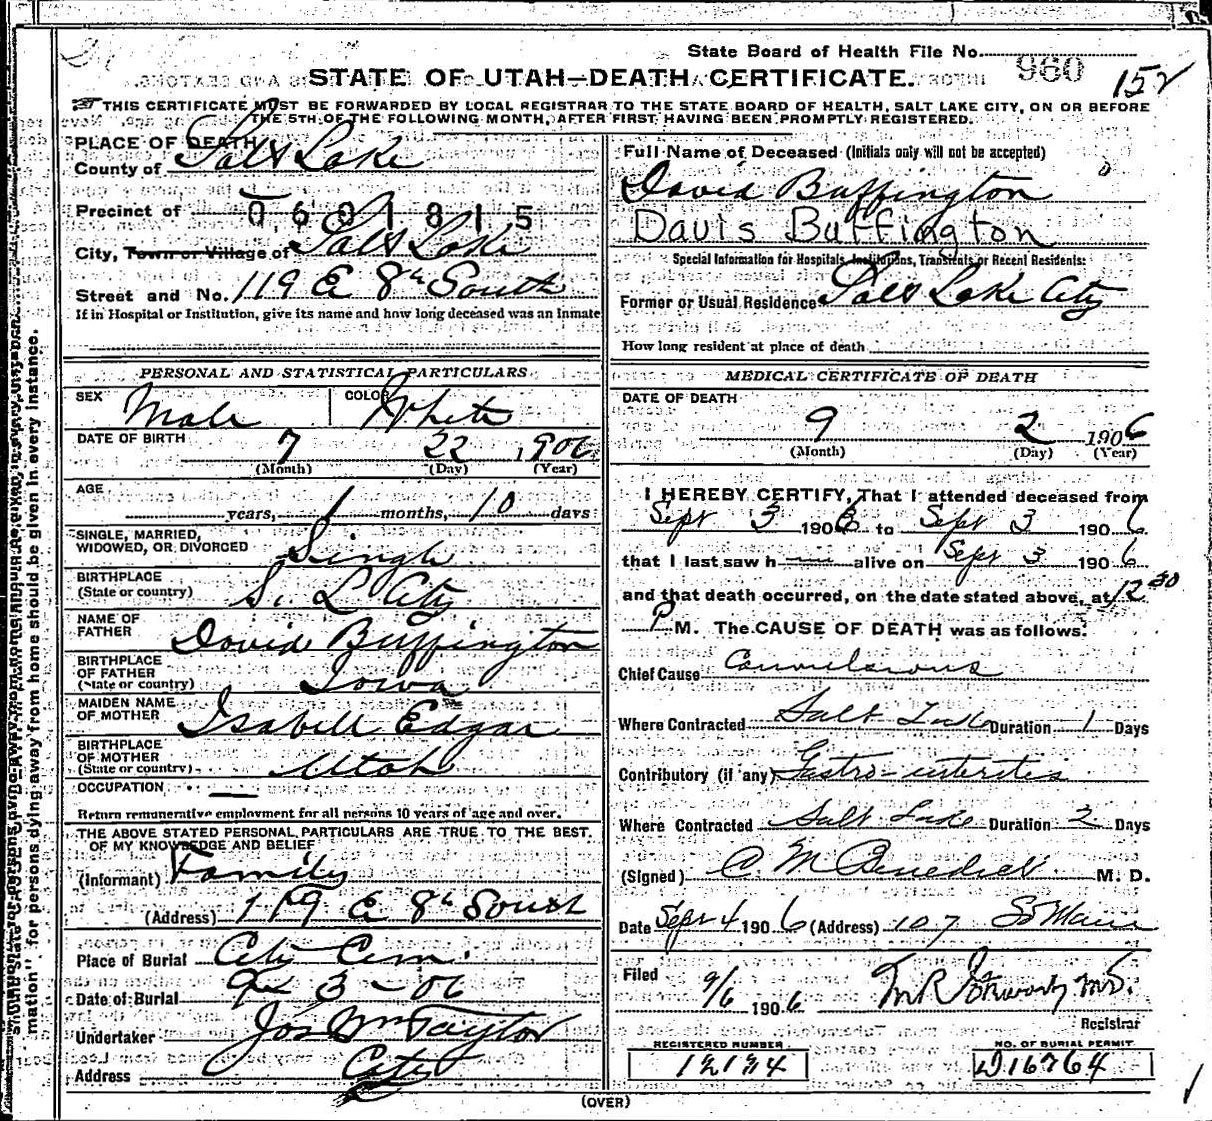 State Board of Health File No. 960 152
STATE OF UTAH—DEATH CERTIFICATE.
THIS CERTIFICATE MUST BE FORWARDED BY LOCAL REGISTRAR TO THE STATE BOARD OF HEALTH, SALT LAKE CITY, ON OR BEFORE
THE 5TH OF THE FOLLOWING MONTH, AFTER FIRST HAVING BEEN PROMPTLY REGISTERED.
PLACE OF DEATH
County of Salt Lake
Precinct of 0601815
City, Town or Village of Salt Lake
Street and No. 119 E 8th South
If in Hospital or Institution, give its name and how long deceased was an Inmate
PERSONAL AND STATISTICAL PARTICULARS
SEX Male COLOR White
DATE OF BIRTH 7 22 1906
(Month) (Day) (Year)
AGE
years, 1 months, 10 days
SINGLE, MARRIED,
WIDOWED, OR DIVORCED Single
BIRTHPLACE
(State or country) S. L City
NAME OF
FATHER David Buffington
BIRTHPLACE
OF FATHER
(State or country) Iowa
MAIDEN NAME
OF MOTHER Isabell Edgar
BIRTHPLACE
OF MOTHER
(State or country) Utah
OCCUPATION —
Return remunerative employment for all persons 10 years of age and over.
THE ABOVE STATED PERSONAL PARTICULARS ARE TRUE TO THE BEST
OF MY KNOWLEDGE AND BELIEF
(Informant) Family
(Address) 119 E 8th South
Place of Burial City Cem.
Date of Burial 3 - 06
Undertaker Jos Wm Taylor
Address City
Full Name of Deceased (Initials only will not be accepted)
David Buffington
Davis Buffington
Special Information for Hospitals, Institutions, Transients or Recent Residents:
Former or Usual Residence Salt Lake City
How long resident at place of death
MEDICAL CERTIFICATE OF DEATH
DATE OF DEATH
9 2 1906
(Month) (Day) (Year)
I HEREBY CERTIFY, That I attended deceased from
Sept 3 1906 to Sept 3 1906
that I last saw h alive on Sept 3 1906
and that death occurred, on the date stated above, at 12 30
P M. The CAUSE OF DEATH was as follows:
Chief Cause Convulsions
Where Contracted Salt Lake Duration 1 Days
Contributory (if any) Gastro-enteritis
Where Contracted Salt Lake Duration 2 Days
(Signed) C. M. Benedict M. D.
Date Sept 4 1906 (Address) 107 So Main
Filed
9/6 1906 M.D.
Registrar
REGISTERED NUMBER NO. OF BURIAL PERMIT
12134 D16764
(OVER)
"mation" for persons dying away from home should be given in every instance.